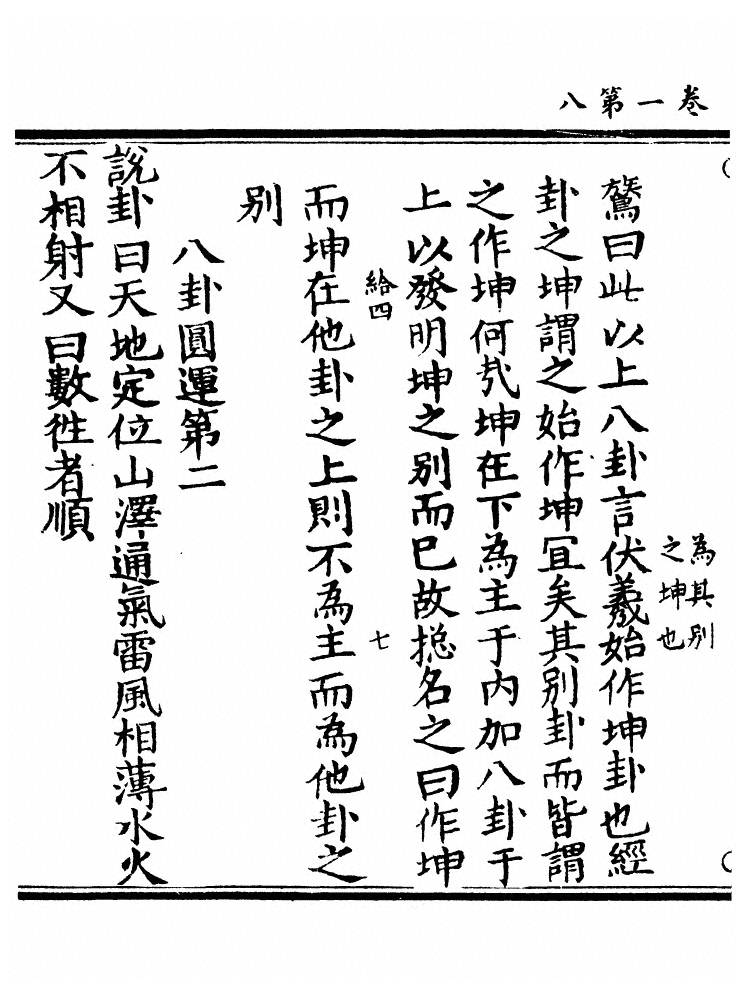 卷一第八
為其別
之坤也
鶩曰此以上八卦言伏羲始作坤卦也經
卦之坤謂之始作坤冝矣其別卦而皆謂
之作坤何㢤坤在下為主于内加八卦于
上以發明坤之别而已故捴名之曰作坤
給四
七
而坤在他卦之上則不為主而為他卦之
别
八卦圓運第二
說卦曰天地定位山澤通氣雷風相薄水火
不相射又曰數徃者順